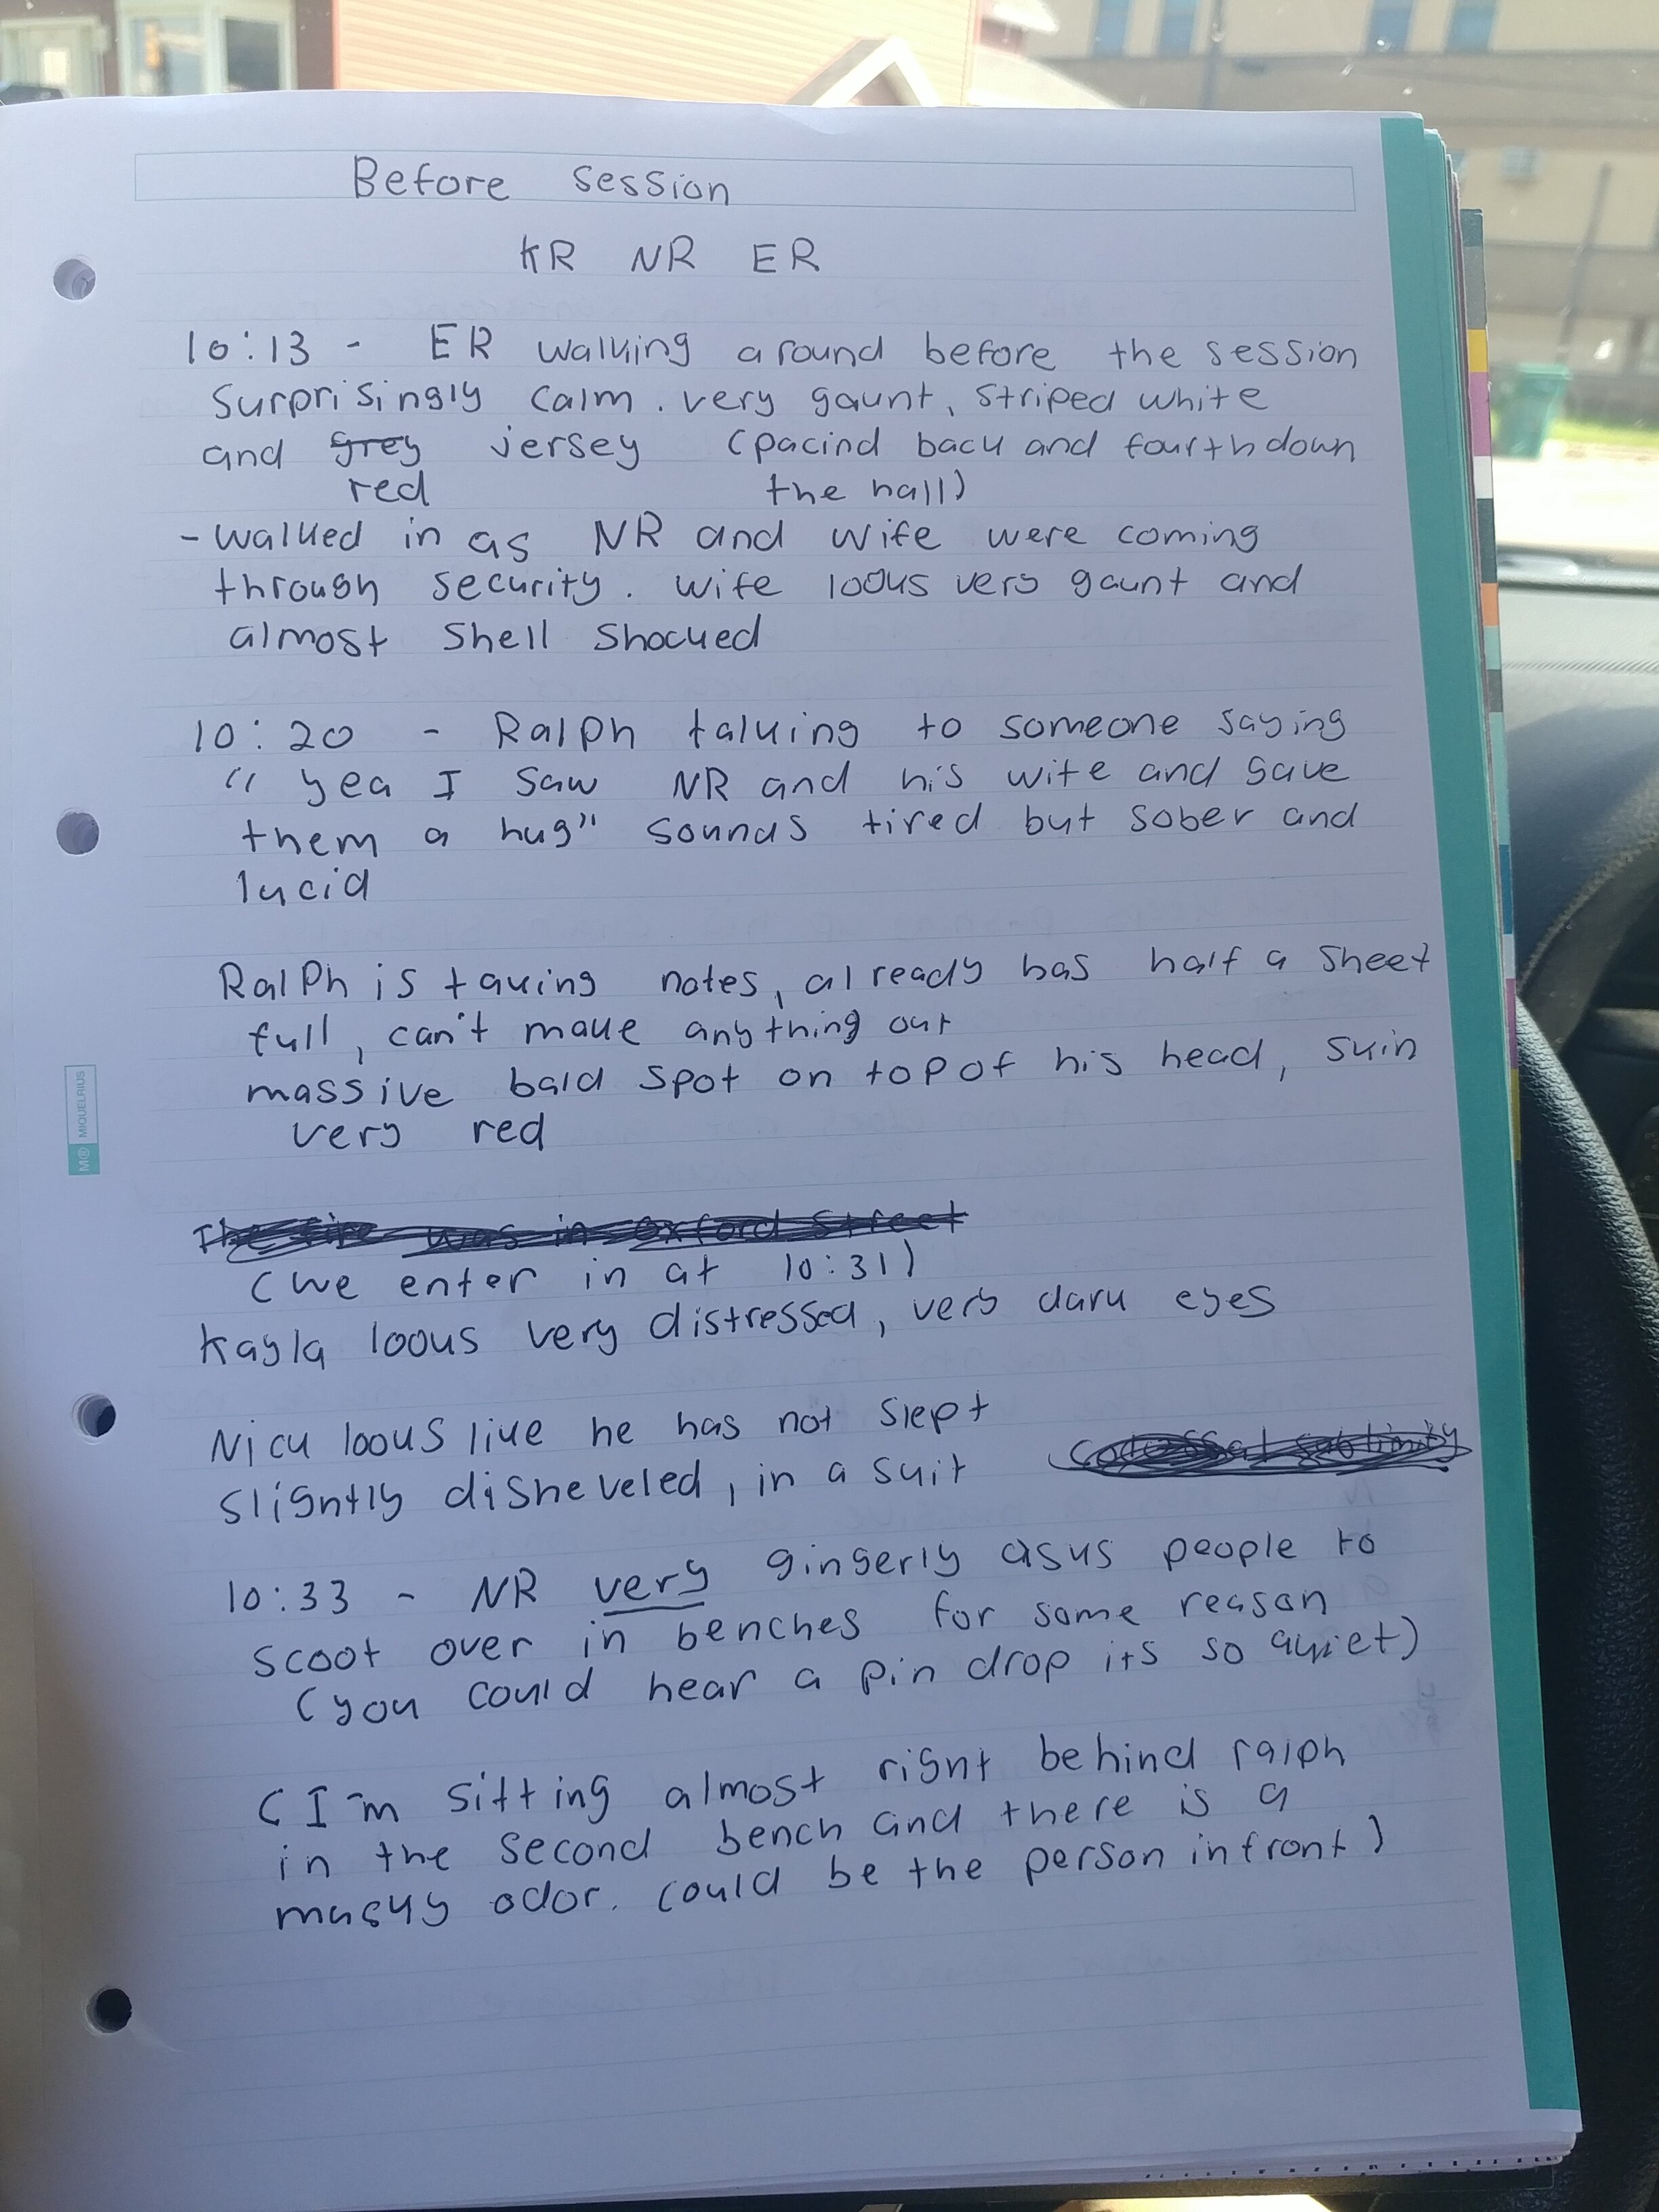 Before session
KR NR ER
10:13 - ER walking around before the session
surprisingly calm. very gaunt, striped white
and grey jersey (pacind back and fourth down
red the hall)
- walked in as NR and wife were coming
through security. wife looks very gaunt and
almost shell shocked
10:20 - Ralph talking to someone saying
"yea I saw NR and his wife and gave
them a hug" sounds tired but sober and
lucid
Ralph is taking notes, already has half a sheet
full, can't make anything out
massive bald spot on top of his head, skin
very red
The fire was in oxford street
(we enter in at 10:31)
Kayla looks very distressed, very dark eyes
Nick looks like he has not slept
slightly disheveled, in a suit
10:33 - NR very gingerly asks people to
scoot over in benches for some reason
(you could hear a pin drop its so quiet)
(I'm sitting almost right behind ralph
in the second bench and there is a
musky odor. could be the person infront)
M® MIQUELRIUS